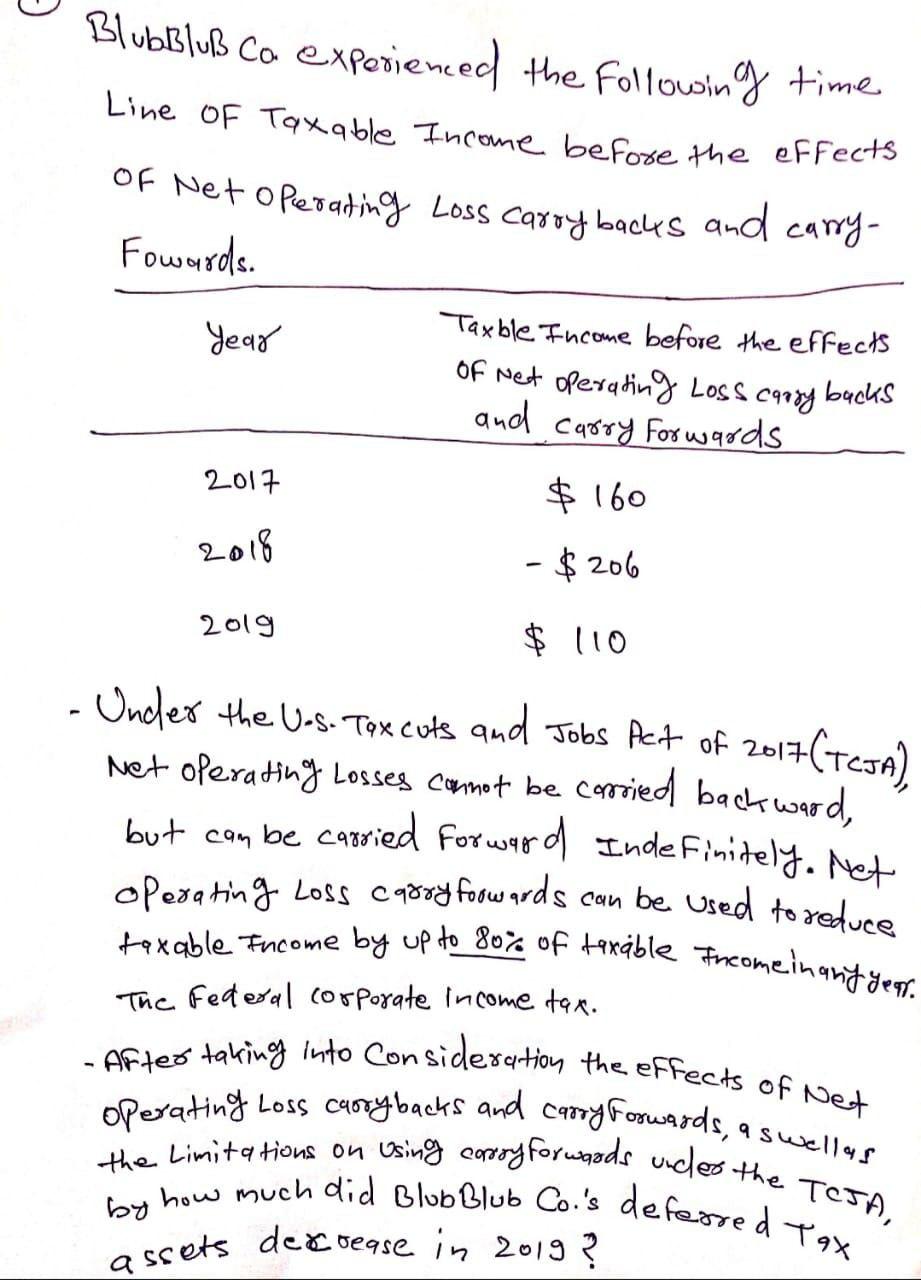 BlubBluB Co. experienced the Following time
Line OF Taxable Income before the effects
OF Net Operating Loss carry backs and carry-
Fowards.
Year
Taxble Income before the effects
OF Net operating Loss carry backs
and carry Forwards
2017 $ 160
2018 - $ 206
2019 $ 110
- Under the U.S. Tax cuts and Jobs Act of 2017 (TCJA),
Net operating Losses cannot be carried backward,
but can be carried Forward IndeFinitely. Net
operating Loss carryforwards can be used to reduce
taxable Income by up to 80% of taxable Income in any year.
The Federal corporate Income tax.
- After taking into Consideration the effects of Net
operating Loss carrybacks and carryForwards, as well as
the Limitations on Using carryforwards under the TCJA,
by how much did BlubBlub Co.'s deferred Tax
assets decrease in 2019 ?